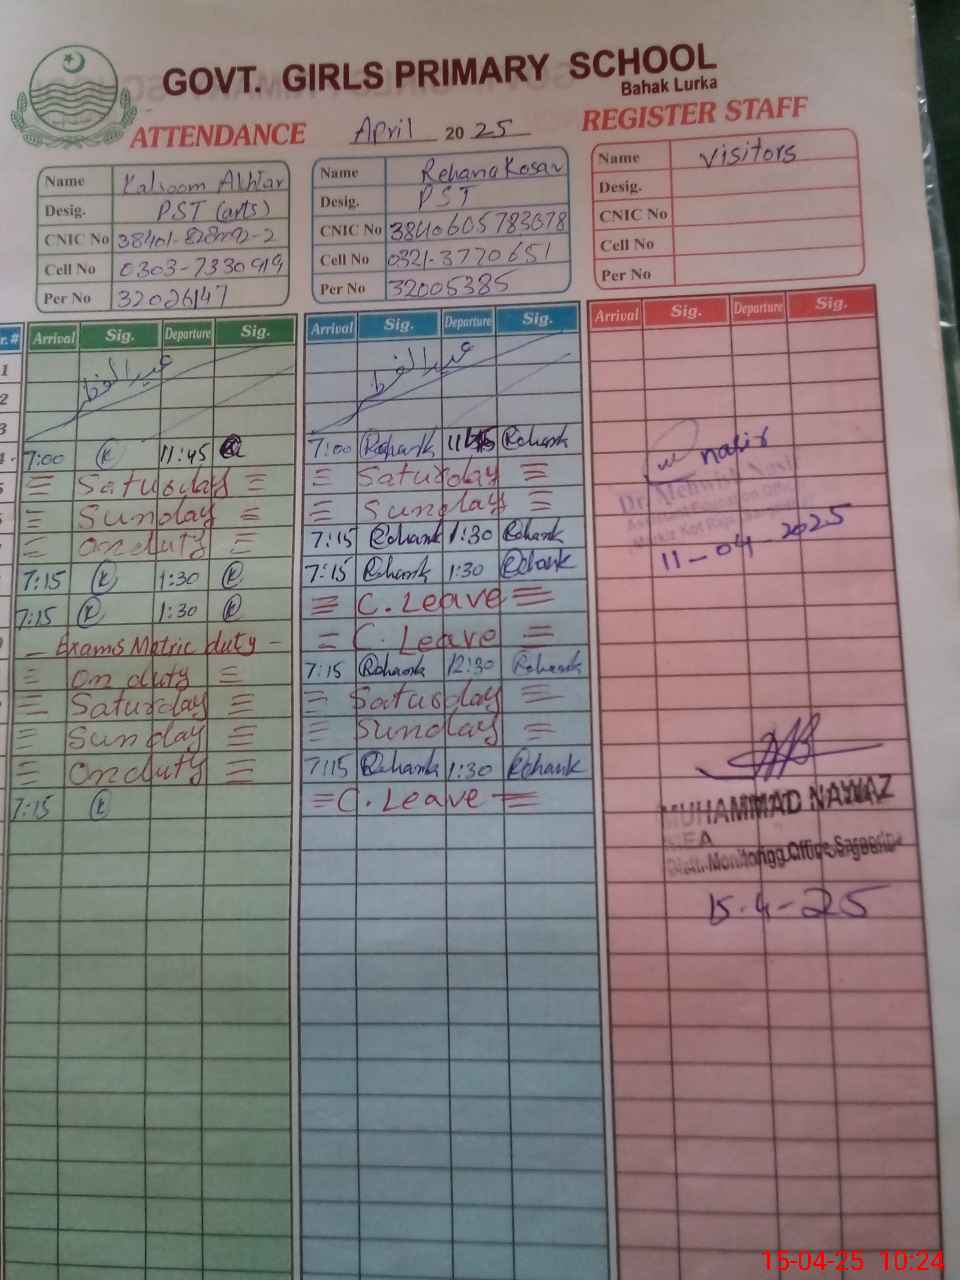 GOVT. GIRLS PRIMARY SCHOOL
Bahak Lurka
ATTENDANCE April 2025 REGISTER STAFF
Name Kalsoom Akhtar
Desig. PST (arts)
CNIC No
Cell No 0303-7330919
Per No 32026147
Name Rehana Kosar
Desig. PST
CNIC No 3840605783078
Cell No 0321-3770651
Per No 32005385
Name visitors
Desig.
CNIC No
Cell No
Per No
r.# Arrival Sig. Departure Sig. Arrival Sig. Departure Sig. Arrival Sig. Departure Sig.
1 عید الفطر عید الفطر
2
3
4 7:00 K 11:45 7:00 Rehank 11:45 Rehank
Saturday Saturday
Sunday Sunday
On duty 7:15 Rehank 1:30 Rehank
7:15 K 1:30 K 7:15 Rehank 1:30 Rehank
7:15 K 1:30 K C. Leave
Exams Matric duty C. Leave
On duty 7:15 Rehank 12:30 Rehank
Saturday Saturday
Sunday Sunday
On duty 7:15 Rehank 1:30 Rehank
7:15 K C. Leave
nasir
Dr. Mehwish Nasir
Assistant Education Officer
11-04-2025
MUHAMMAD NAWAZ
MEA
Distt. Monitoringg Office Sargodha
15-4-25
15-04-25 10:24